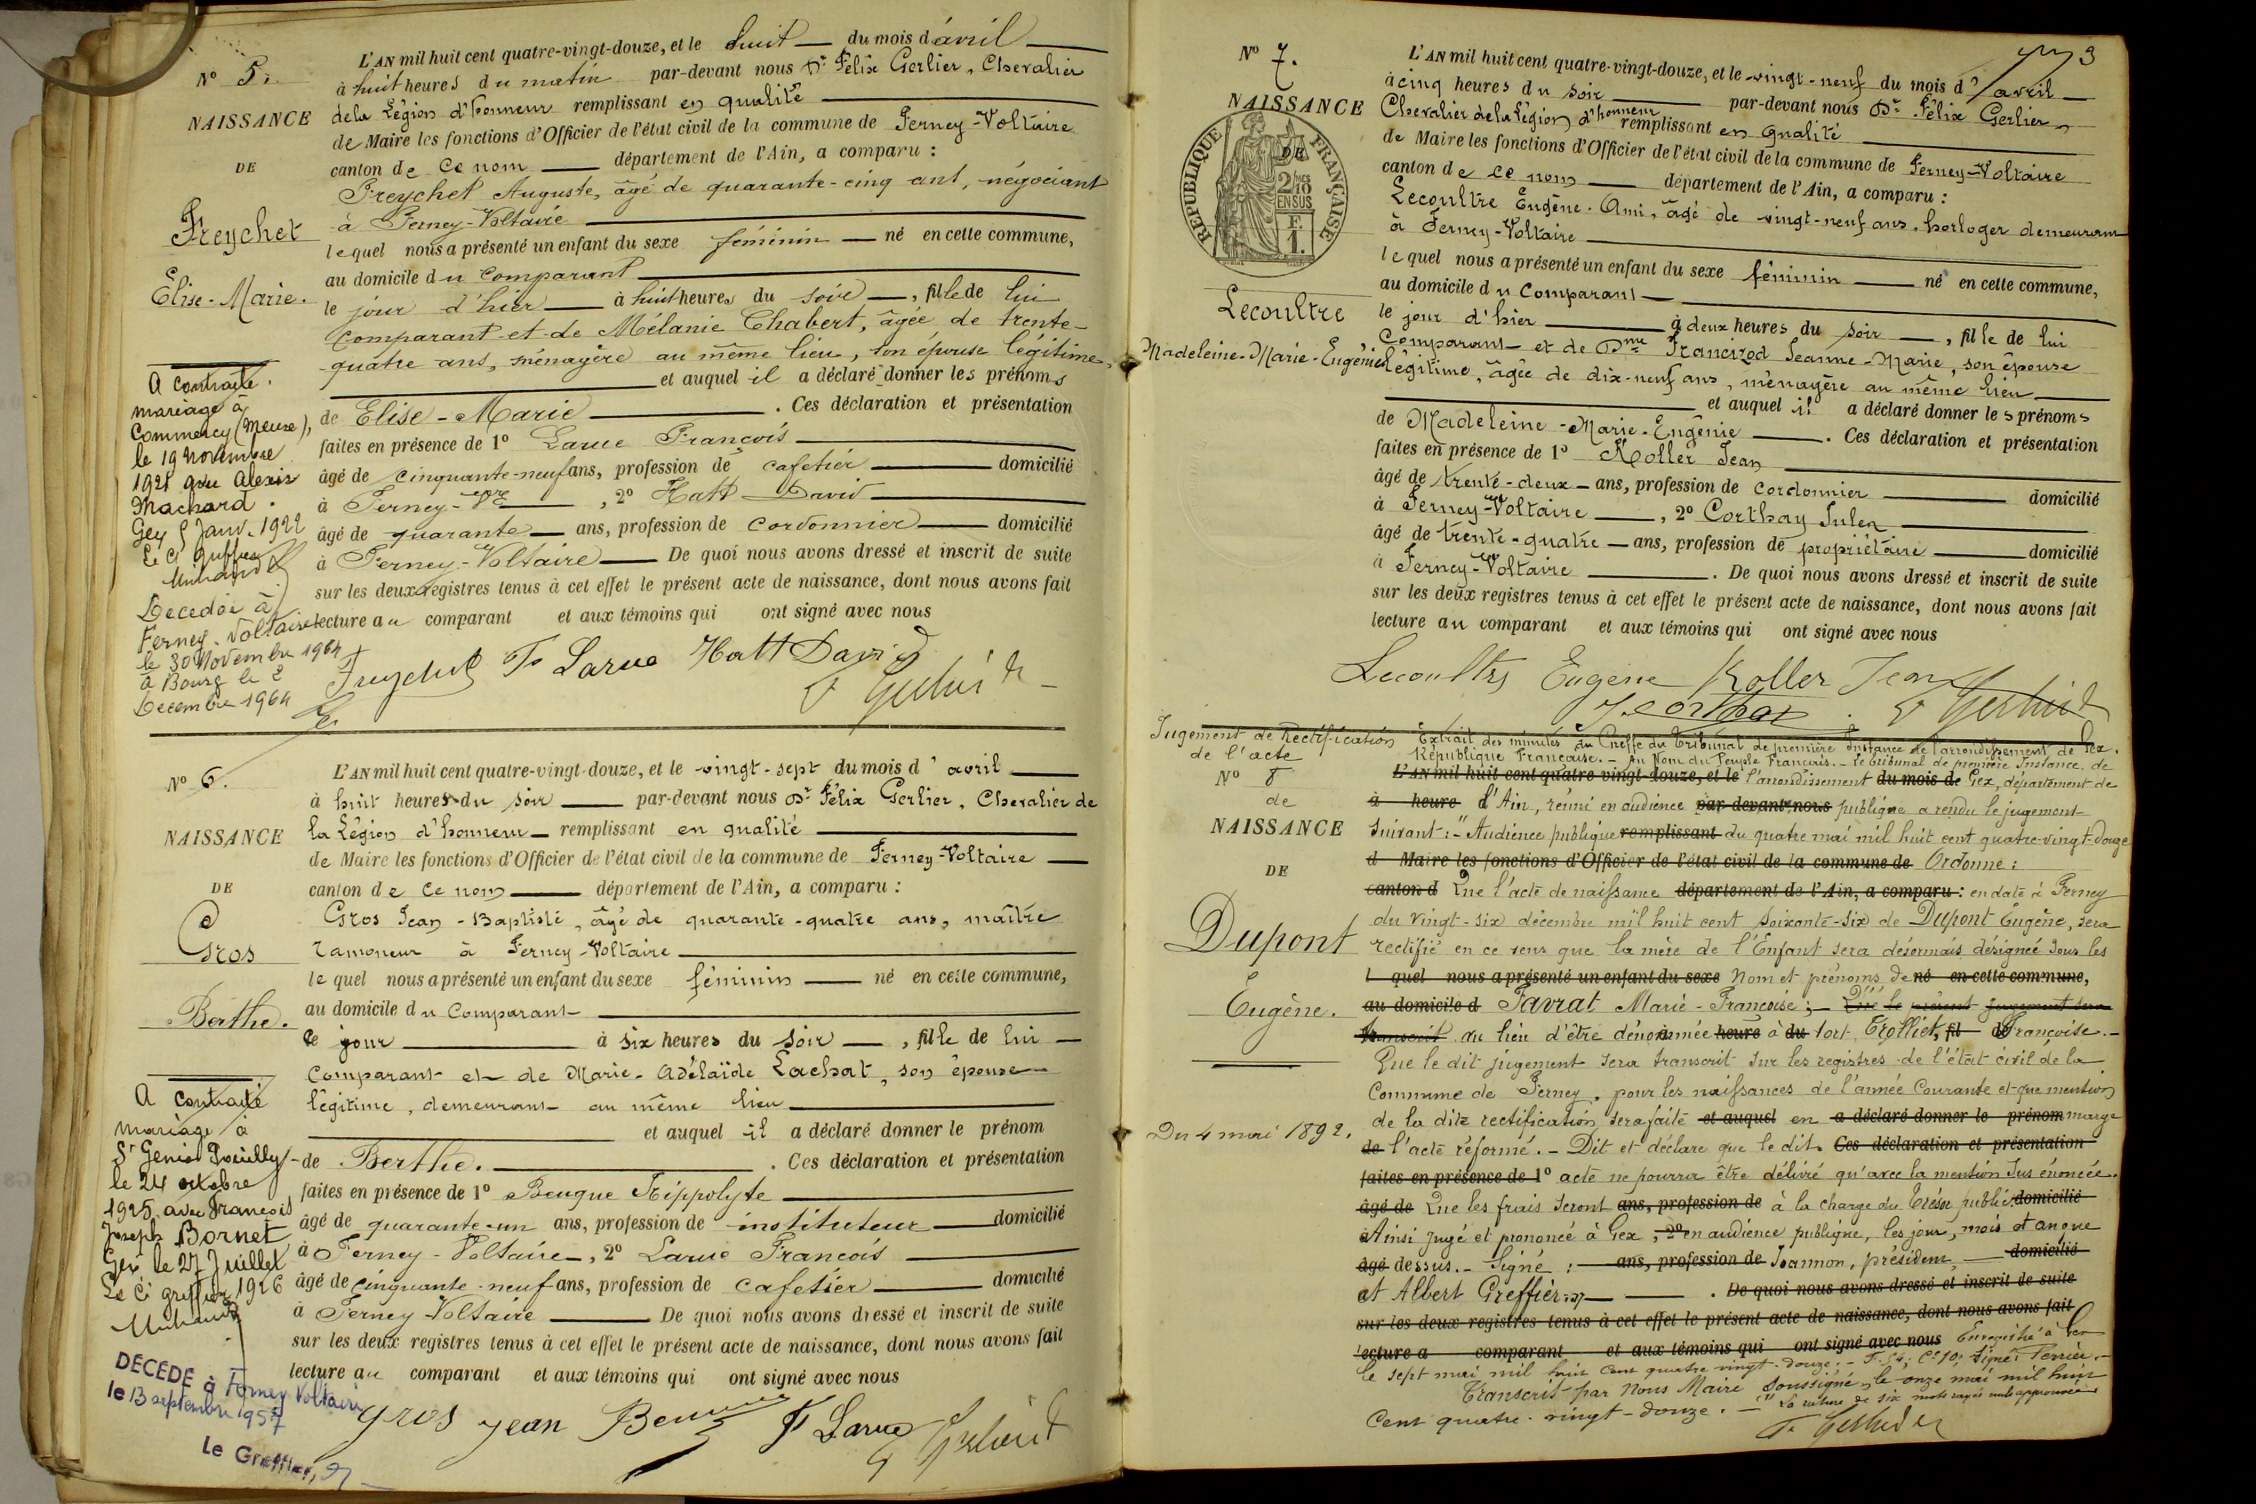 N° 5.
NAISSANCE
DE
Freychet
Elise-Marie.
A contracté
mariage à
Commercy (Meuse),
le 19 novembre
1921 avec Alexis
Machard.
Gex 5 Janv. 1922
Le Cis greffier
Décédée à
Ferney-Voltaire
le 30 Novembre 1964
à Bourg le 2
Décembre 1964
L'AN mil huit cent quatre-vingt-douze, et le huit du mois d'avril
à huit heures du matin par-devant nous Dr Félix Gerlier, Chevalier
de la Légion d'honneur remplissant en qualité
de Maire les fonctions d'Officier de l'état civil de la commune de Ferney-Voltaire
canton de ce nom département de l'Ain, a comparu :
Freychet Auguste, âgé de quarante-cinq ans, négociant
à Ferney-Voltaire
lequel nous a présenté un enfant du sexe féminin né en cette commune,
au domicile du comparant
le jour d'hier à huit heures du soir, fille de lui
comparant et de Mélanie Chabert, âgée de trente-
quatre ans, ménagère au même lieu, son épouse légitime,
et auquel il a déclaré donner les prénoms
de Elise-Marie. Ces déclaration et présentation
faites en présence de 1° Larue François
âgé de cinquante-neuf ans, profession de cafetier domicilié
à Ferney-Vre, 2° Hatt David
âgé de quarante ans, profession de cordonnier domicilié
à Ferney-Voltaire De quoi nous avons dressé et inscrit de suite
sur les deux registres tenus à cet effet le présent acte de naissance, dont nous avons fait
lecture au comparant et aux témoins qui ont signé avec nous
Freychet Fs Larue Hatt David
F Gerlier
N° 6.
NAISSANCE
DE
Gros
Berthe.
A contracté
mariage à
St Genis Pouilly
le 24 octobre
1925, avec François
Joseph Bornet
Gex le 27 Juillet
1926
Le Cis greffier
DÉCÉDÉ à Ferney Voltaire
le 13 septembre 1957
Le Greffier,
L'AN mil huit cent quatre-vingt-douze, et le vingt-sept du mois d'avril
à huit heures du soir par-devant nous Dr Félix Gerlier, Chevalier de
la Légion d'honneur remplissant en qualité
de Maire les fonctions d'Officier de l'état civil de la commune de Ferney-Voltaire
canton de ce nom département de l'Ain, a comparu :
Gros Jean-Baptiste, âgé de quarante-quatre ans, maître
ramoneur à Ferney-Voltaire
lequel nous a présenté un enfant du sexe féminin né en cette commune,
au domicile du comparant
ce jour à six heures du soir, fille de lui
comparant et de Marie-Adélaïde Lachat, son épouse
légitime, demeurant au même lieu
et auquel il a déclaré donner le prénom
de Berthe. Ces déclaration et présentation
faites en présence de 1° Beugue Hippolyte
âgé de quarante-un ans, profession de instituteur domicilié
à Ferney-Voltaire, 2° Larue François
âgé de cinquante-neuf ans, profession de cafetier domicilié
à Ferney-Voltaire De quoi nous avons dressé et inscrit de suite
sur les deux registres tenus à cet effet le présent acte de naissance, dont nous avons fait
lecture au comparant et aux témoins qui ont signé avec nous
Gros Jean F Larue
F Gerlier
3
N° 7.
NAISSANCE
DE
RÉPUBLIQUE FRANÇAISE
2/10 EN SUS
F. 1.
Lecoultre
Madeleine-Marie-Eugénie
L'AN mil huit cent quatre-vingt-douze, et le vingt-neuf du mois d'avril
à cinq heures du soir par-devant nous Dr Félix Gerlier,
Chevalier de la Légion d'honneur remplissant en qualité
de Maire les fonctions d'Officier de l'état civil de la commune de Ferney-Voltaire
canton de ce nom département de l'Ain, a comparu :
Lecoultre Eugène-Ami, âgé de vingt-neuf ans, horloger demeurant
à Ferney-Voltaire
lequel nous a présenté un enfant du sexe féminin né en cette commune,
au domicile du comparant
le jour d'hier à deux heures du soir, fille de lui
comparant et de Dme Francizod Jeanne-Marie, son épouse
légitime, âgée de dix-neuf ans, ménagère au même lieu
et auquel il a déclaré donner les prénoms
de Madeleine-Marie-Eugénie. Ces déclaration et présentation
faites en présence de 1° Koller Jean
âgé de trente-deux ans, profession de cordonnier domicilié
à Ferney-Voltaire, 2° Corthay Jules
âgé de trente-quatre ans, profession de propriétaire domicilié
à Ferney-Voltaire. De quoi nous avons dressé et inscrit de suite
sur les deux registres tenus à cet effet le présent acte de naissance, dont nous avons fait
lecture au comparant et aux témoins qui ont signé avec nous
Lecoultre Eugène Koller Jean
J Corthay F Gerlier
Jugement de Rectification
de l'acte
N° 8
de
NAISSANCE
DE
Dupont
Eugène.
Du 4 mai 1892.
Extrait des minutes du Greffe du Tribunal de première Instance de l'arrondissement de Gex.
République Française. - Au Nom du Peuple Français. - Le tribunal de première Instance de
L'AN mil huit cent quatre-vingt-douze, et le l'arrondissement du mois de Gex, département de
à heure d l'Ain, réuni en audience par-devant nous publique a rendu le jugement
suivant : " Audience publique remplissant du quatre mai mil huit cent quatre-vingt-douze
d Maire les fonctions d'Officier de l'état civil de la commune de Ordonne :
canton d Que l'acte de naissance département de l'Ain, a comparu : en date à Ferney
du vingt-six décembre mil huit cent soixante-six de Dupont Eugène, sera
rectifié en ce sens que la mère de l'Enfant sera désormais désignée sous les
l quel nous a présenté un enfant du sexe Nom et prénoms de né en cette commune,
au domicile d Favrat Marie-Françoise ; - Que le présent jugement sera
transcrit au lieu d'être dénommée heure à du tort Trolliet, fil d Françoise. -
Que le dit jugement sera transcrit sur les registres de l'état civil de la
Commune de Ferney, pour les naissances de l'année Courante et que mention
de la dite rectification sera faite et auquel en a déclaré donner le prénom marge
de l'acte réformé. - Dit et déclare que le dit Ces déclaration et présentation
faites en présence de 1° acte ne pourra être délivré qu'avec la mention sus énoncée.
âgé de Que les frais seront ans, profession de à la charge du Trésor public. domicilié
Ainsi jugé et prononcé à Gex, 2° en audience publique, les jour, mois et an que
âgé dessus. - Signé : ans, profession de Joannon, président, domicilié
et Albert Greffier. De quoi nous avons dressé et inscrit de suite
sur les deux registres tenus à cet effet le présent acte de naissance, dont nous avons fait
lecture a comparant et aux témoins qui ont signé avec nous Enregistré à Gex
le sept mai mil huit cent quatre vingt-douze. - F. 54, Ce 10, signé : Perrier. -
Transcrit par Nous Maire soussigné, le onze mai mil huit
Cent quatre-vingt-douze. - La rature de six mots rayés nuls approuvée
F. Gerlier